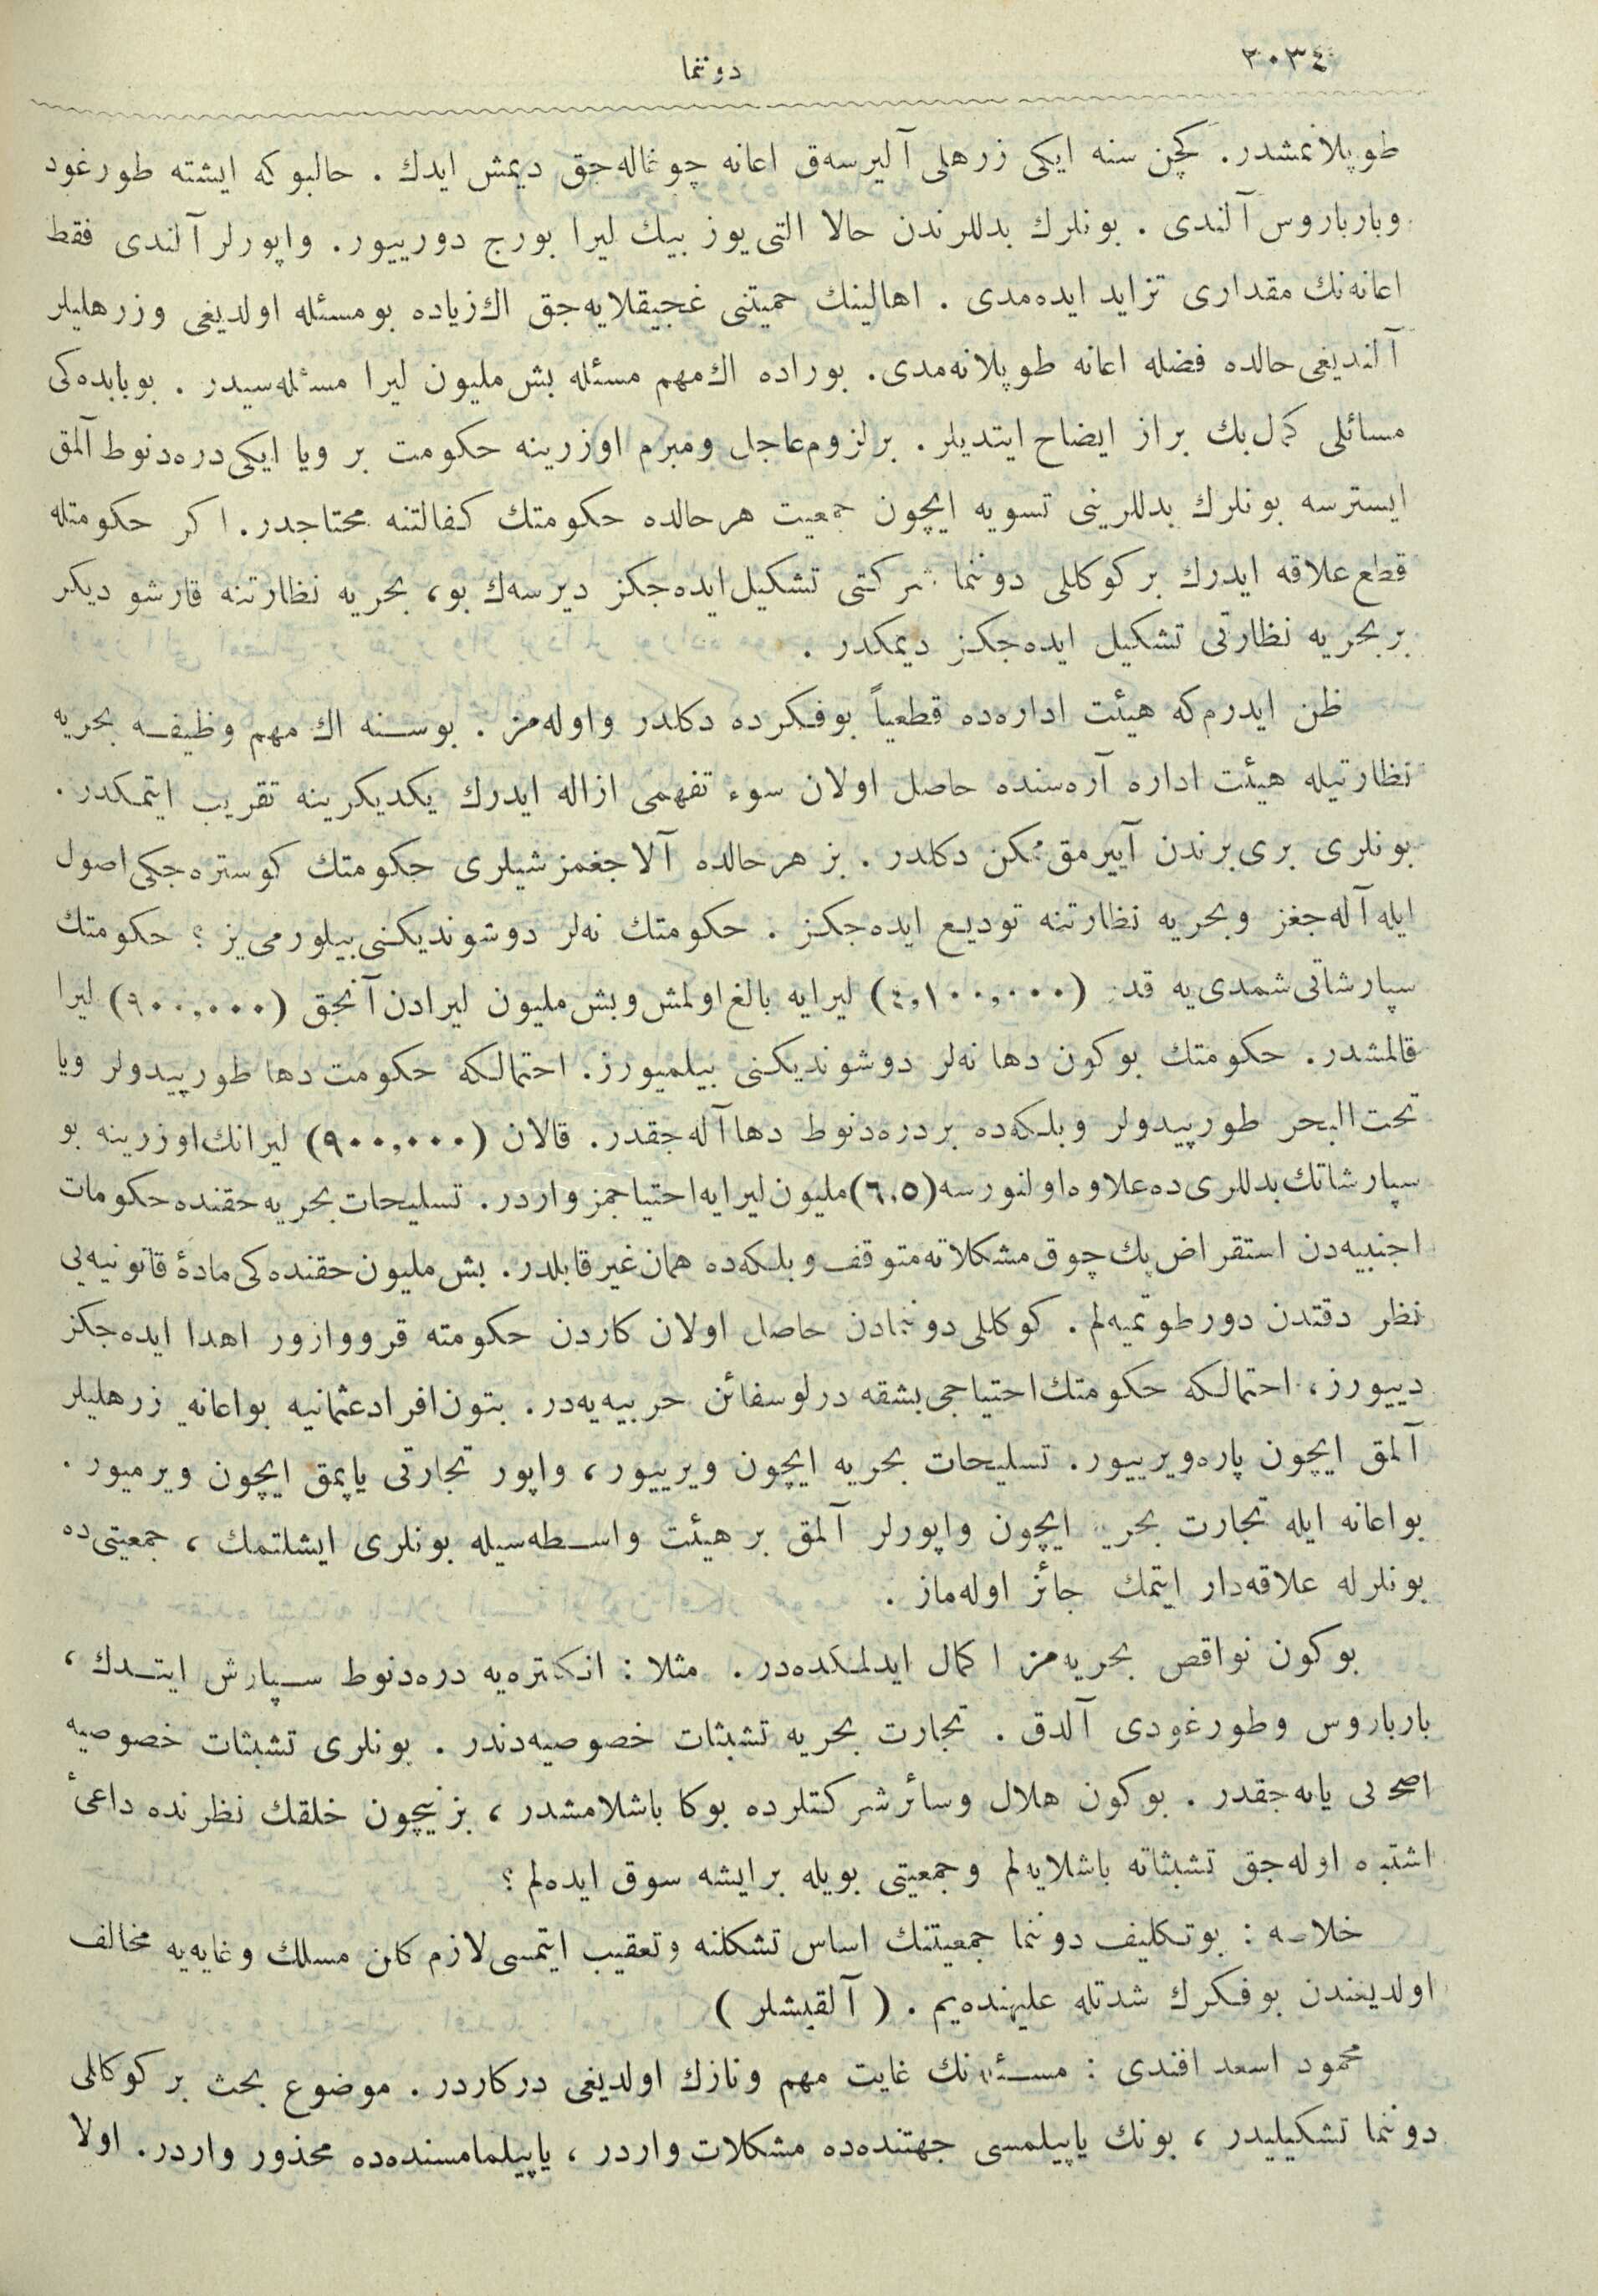 ٢٠٣٤
دوننما
طوپلانمشدر. كچن سنه ايكى زرهلى آليرسه‌ق اعانه چوغاله‌جق ديمش ايدك . حالبوكه ايشته طورغود
وبارباروس آلندى . بونلرك بدللرندن حالا التى يوز بيك ليرا بورج دورييور. واپورلر آلندى فقط
اعانه‌نك مقدارى تزايد ايده‌مدى . اهالينك حميتنى غجيقلايه‌جق اك زياده بو مسئله اولديغى وزرهليلر
آلنديغى حالده فضله اعانه طوپلانه‌مدى. بوراده اك مهم مسئله بش مليون ليرا مسئله‌سيدر . بو بابده‌كى
مسائلى كمال بك براز ايضاح ايتديلر. بر لزوم عاجل ومبرم اوزرينه حكومت بر ويا ايكى دره‌دنوط آلمق
ايسترسه بونلرك بدللرينى تسويه ايچون جمعيت هر حالده حكومتك كفالتنه محتاجدر. اكر حكومتله
قطع علاقه ايدرك بر كوكللى دوننما شركتى تشكيل ايده‌جكز ديرسه‌ك بو، بحريه نظارتنه قارشو ديكر
بر بحريه نظارتى تشكيل ايده‌جكز ديمكدر .
ظن ايدرم كه هيئت اداره‌ده قطعياً بو فكرده دكلدر واوله‌مز . بو سنه اك مهم وظيفه بحريه
نظارتيله هيئت اداره آره‌سنده حاصل اولان سوء تفهمى ازاله ايدرك يكديكرينه تقريب ايتمكدر.
بونلرى برى برندن آييرمق ممكن دكلدر . بز هر حالده آلاجغمز شيلرى حكومتك كوستره‌جكى اصول
ايله آله‌جغز وبحريه نظارتنه توديع ايده‌جكز . حكومتك نه‌لر دوشونديكنى بيلورمى‌يز ؟ حكومتك
سپارشاتى شمدى‌يه قدر (٤,١٠٠,٠٠٠) ليرايه بالغ اولمش وبش مليون ليرادن آنجق (٩٠٠,٠٠٠) ليرا
قالمشدر. حكومتك بوكون دها نه‌لر دوشونديكنى بيلميورز. احتمالكه حكومت دها طورپيدولر ويا
تحت البحر طورپيدولر وبلكه‌ده بر دره‌دنوط دها آله‌جقدر. قالان (٩٠٠,٠٠٠) ليرانك اوزرينه بو
سپارشاتك بدللرى ده علاوه اولنورسه (٦,٥) مليون ليرايه احتياجمز واردر. تسليحات بحريه حقنده حكومات
اجنبيه‌دن استقراض پك چوق مشكلاته متوقف وبلكه‌ده همان غير قابلدر. بش مليون حقنده‌كى مادۀ قانونيه‌يى
نظر دقتدن دور طوتميه‌لم. كوكللى دوننمادن حاصل اولان كاردن حكومته قرووازور اهدا ايده‌جكز
دييورز، احتمالكه حكومتك احتياجى بشقه درلو سفائن حربيه‌يه‌در. بتون افراد عثمانيه بو اعانه‌يى زرهليلر
آلمق ايچون پاره ويرييور. تسليحات بحريه ايچون ويرييور، واپور تجارتى ياپمق ايچون ويرميور .
بو اعانه ايله تجارت بحريه ايچون واپورلر آلمق بر هيئت واسطه‌سيله بونلرى ايشلتمك ، جمعيتى ده
بونلرله علاقه‌دار ايتمك جائز اوله‌ماز .
بوكون نواقص بحريه‌مز اكمال ايدلمكده‌در. مثلا : انكلتره‌يه دره‌دنوط سپارش ايتدك ،
بارباروس وطورغودى آلدق . تجارت بحريه تشبثات خصوصيه‌دندر . بونلرى تشبثات خصوصيه
اصحابى ياپه‌جقدر . بوكون هلال وسائر شركتلرده بوكا باشلامشدر ، بز نيچون خلقك نظرنده داعئ
اشتباه اوله‌جق تشبثاته باشلايه‌لم وجمعيتى بويله بر ايشه سوق ايده‌لم ؟
خلاصه : بو تكليف دوننما جمعيتنك اساس تشكلنه وتعقيب ايتمسى لازم كلن مسلك وغايه‌يه مخالف
اولديغندن بو فكرك شدتله عليهنده‌يم . ( آلقيشلر )
محمود اسعد افندى : مسئله‌نك غايت مهم ونازك اولديغى دركاردر. موضوع بحث بر كوكللى
دوننما تشكيليدر ، بونك ياپيلمسى جهتنده‌ده مشكلات واردر ، ياپيلمامسنده‌ده محذور واردر. اولا